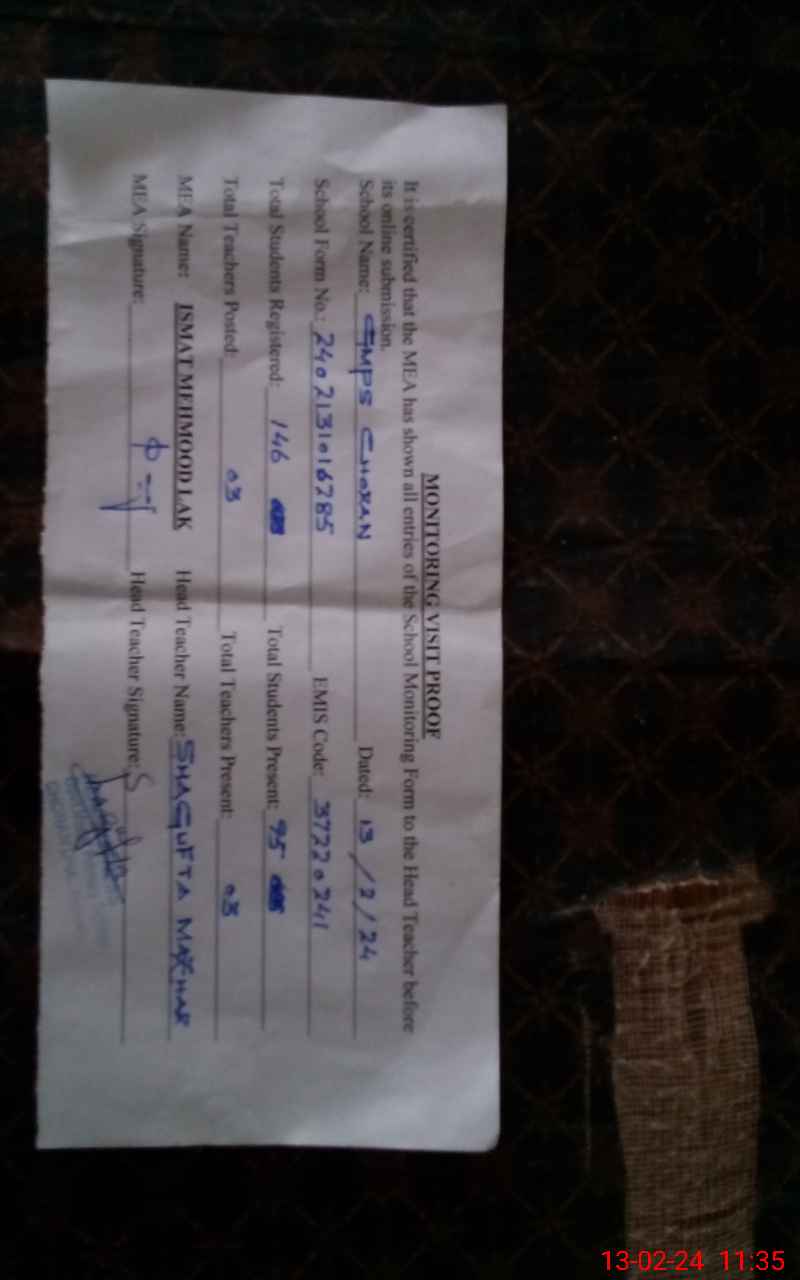 MONITORING VISIT PROOF
It is certified that the MEA has shown all entries of the School Monitoring Form to the Head Teacher before
its online submission.
School Name: GMPS CHORAN Dated: 13/2/24
School Form No.: 2402131016285 EMIS Code: 37220241
Total Students Registered: 146 Total Students Present: 95
Total Teachers Posted: 03 Total Teachers Present: 03
MEA Name: ISMAT MEHMOOD LAK Head Teacher Name: SHAGUFTA MAKHAR
MEA Signature: Head Teacher Signature:
13-02-24 11:35